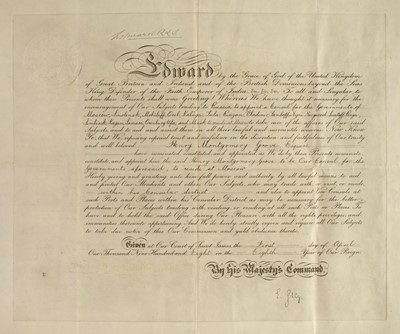 Edward R & I
Edward by the Grace of God of the United Kingdom
of Great Britain and Ireland and of the British Dominions beyond the Seas
King, Defender of the Faith, Emperor of India &c &c &c To all and Singular, to
whom these Presents shall come Greeting! Whereas We have thought it necessary for the
encouragement of Our Subjects trading to Russia to appoint a Consul for the Governments of
Moscow,
Subjects and to aid and assist them in all their lawful and mercantile concerns Now Know
Ye that We reposing especial trust and confidence in the discretion and faithfulness of Our trusty
and well beloved Henry Montgomery Grove Esquire
have nominated constituted and appointed as We do by these Presents nominate
constitute and appoint him the said Henry Montgomery Grove to be Our Consul for the
Governments aforesaid to reside at Moscow
Hereby giving and granting unto him full power and authority by all lawful means to aid
and protect Our Merchants and others Our Subjects, who may trade with or visit or reside
within his Consular district and also to appoint Vice Consuls at
such Ports and Places within his Consular District as may be necessary for the better
protection of Our Subjects trading with visiting or residing at all such Ports or Places To
have and to hold the said Office during Our Pleasure with all the rights privileges and
immunities thereunto appertaining And We do hereby strictly enjoin and require all Our Subjects
to take due notice of this Our Commission and yield obedience thereto
Given at Our Court of Saint James the first day of April
One Thousand Nine Hundred and Eight in the Eighth Year of Our Reign
By His Majesty's Command.
E. Grey